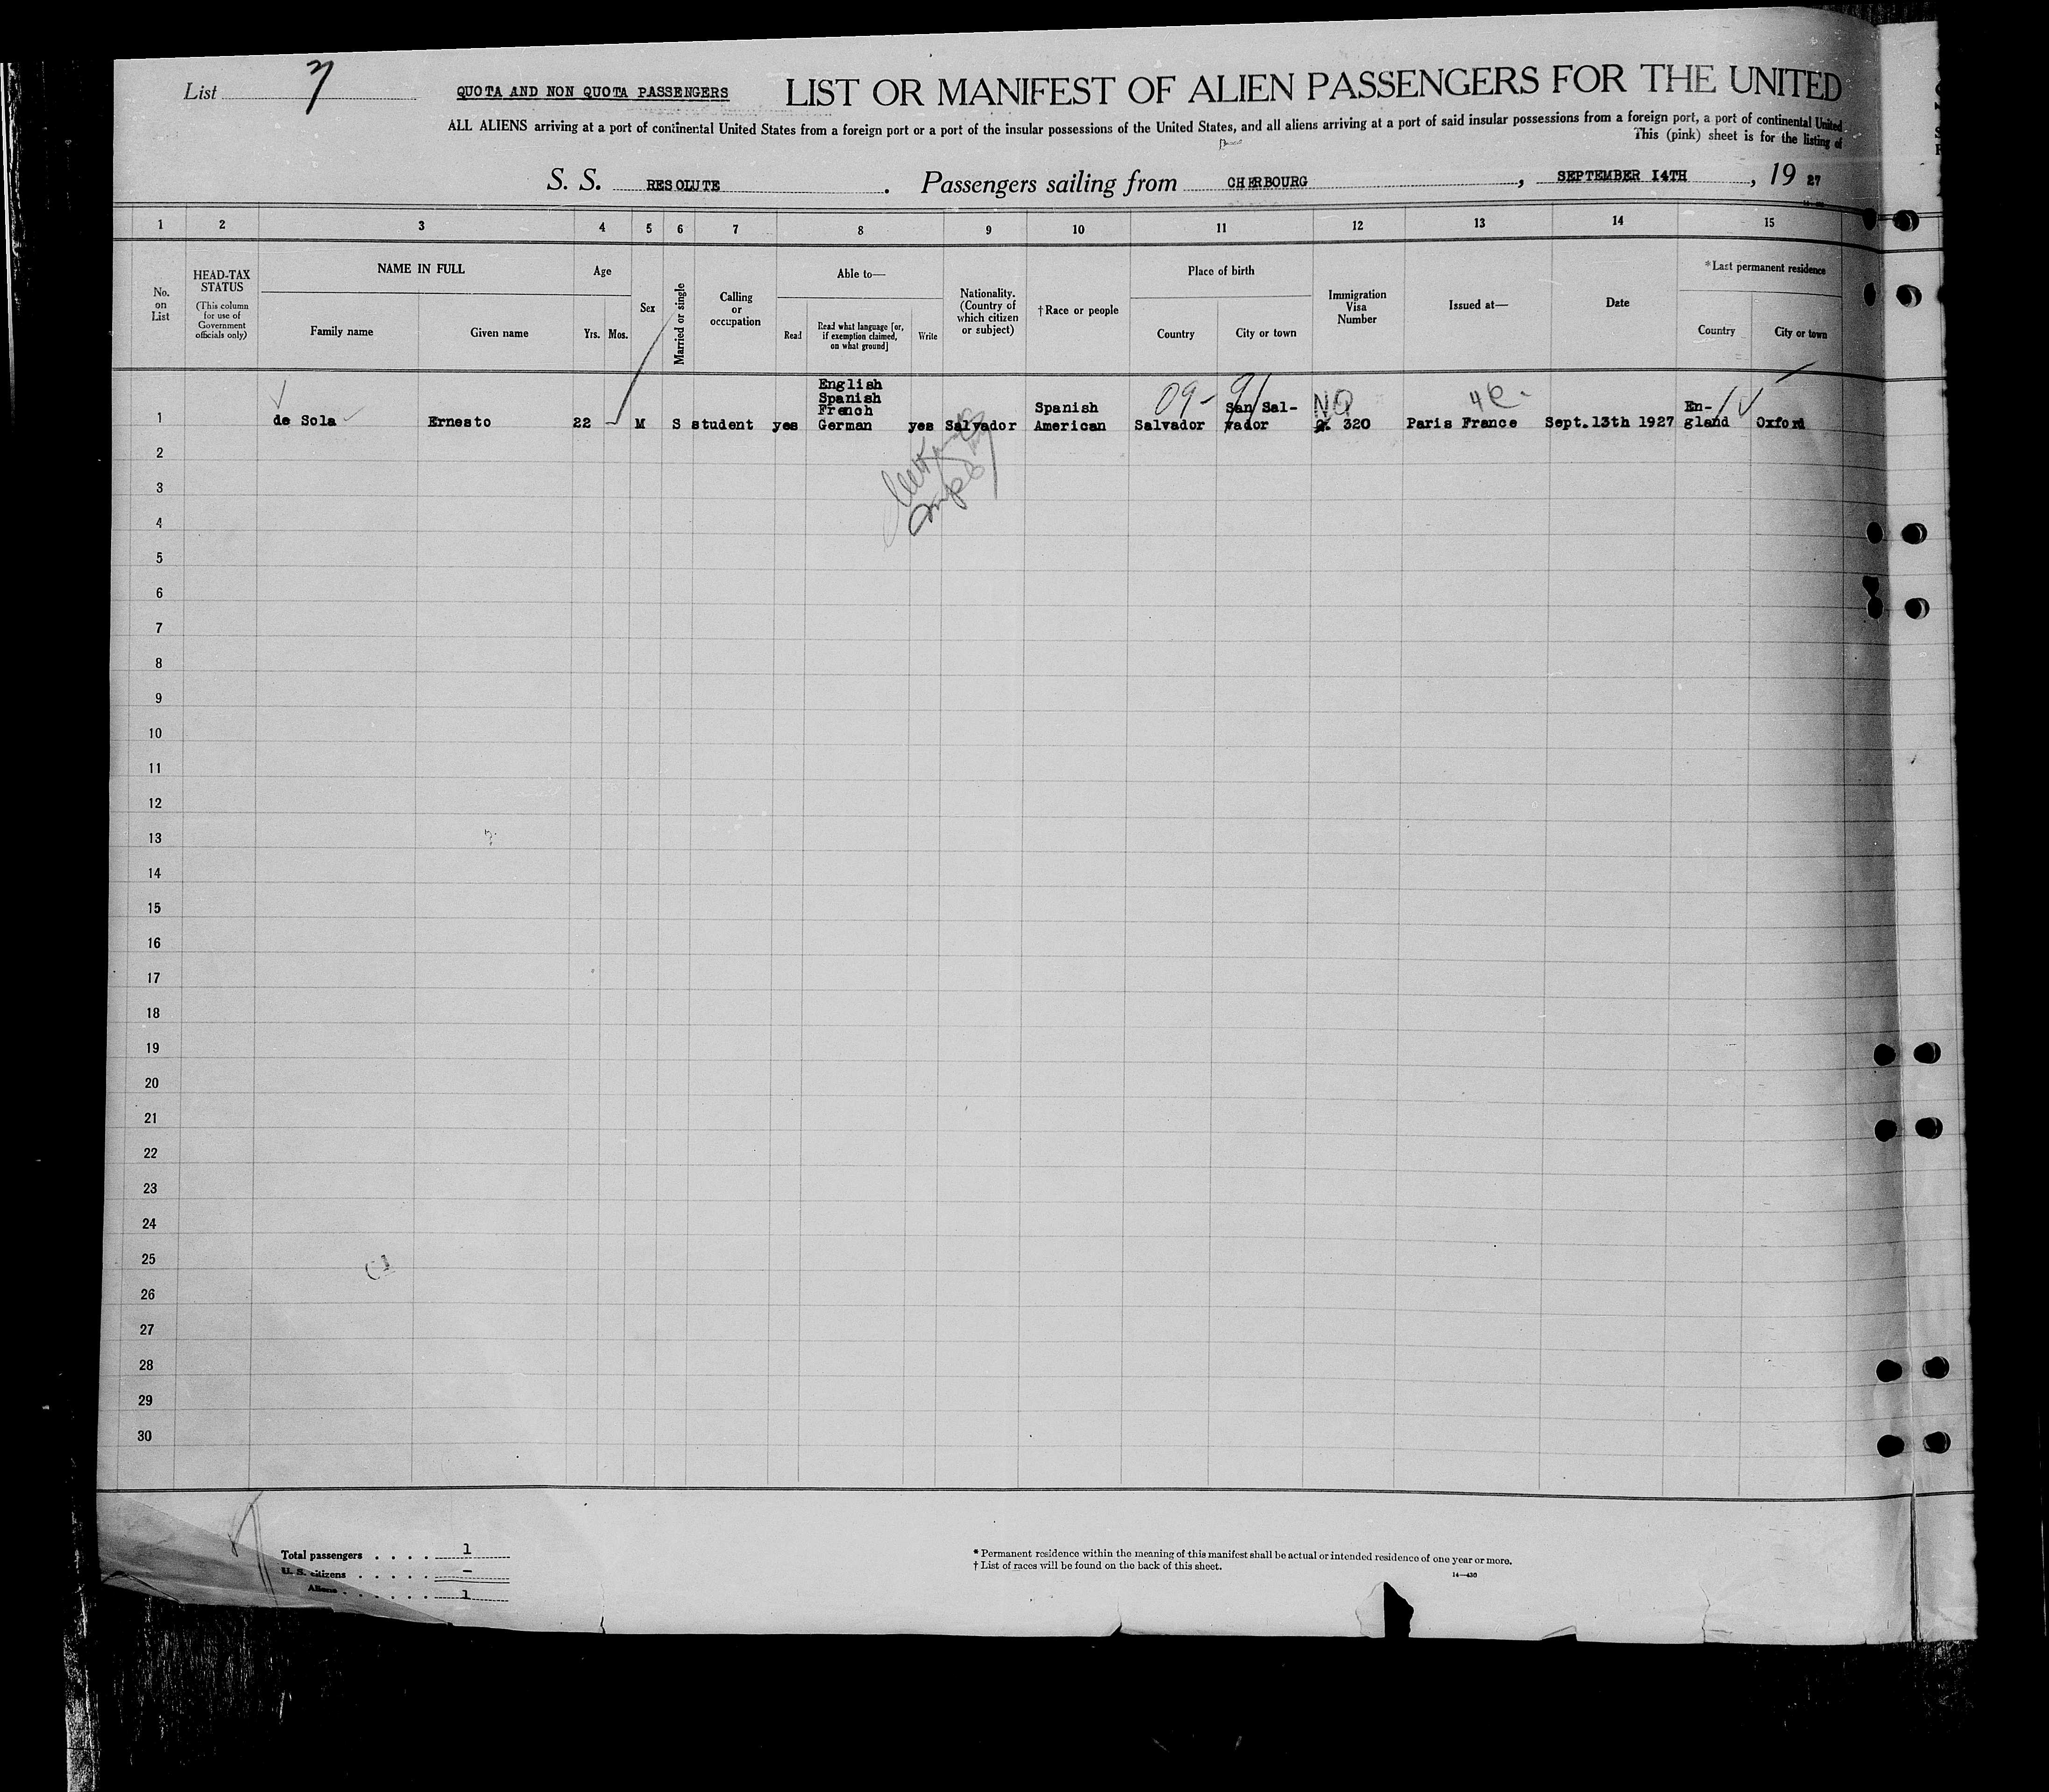 List 7
QUOTA AND NON QUOTA PASSENGERS
LIST OR MANIFEST OF ALIEN PASSENGERS FOR THE UNITED
ALL ALIENS arriving at a port of continental United States from a foreign port or a port of the insular possessions of the United States, and all aliens arriving at a port of said insular possessions from a foreign port, a port of continental United
This (pink) sheet is for the listing of
S. S. RESOLUTE . Passengers sailing from CHERBOURG , SEPTEMBER 14TH , 19 27
1 2 3 4 5 6 7 8 9 10 11 12 13 14 15
No. on List
HEAD-TAX STATUS
(This column for use of Government officials only)
NAME IN FULL
Family name Given name
Age
Yrs. Mos.
Sex
Married or single
Calling or occupation
Able to—
Read
Read what language [or, if exemption claimed, on what ground]
Write
Nationality. (Country of which citizen or subject)
†Race or people
Place of birth
Country City or town
Immigration Visa Number
Issued at—
Date
*Last permanent residence
Country City or town
English
Spanish
French
German
09-
NQ
1 de Sola Ernesto 22 - M S student yes yes Salvador Spanish American Salvador San Sal-vador 320 Paris France Sept.13th 1927 En-gland Oxford
2
3
4
5
6
7
8
9
10
11
12
13
14
15
16
17
18
19
20
21
22
23
24
25
26
27
28
29
30
Total passengers . . . . 1
U. S. citizens . . . . . -
Aliens . . . . . . 1
* Permanent residence within the meaning of this manifest shall be actual or intended residence of one year or more.
† List of races will be found on the back of this sheet.
14—430